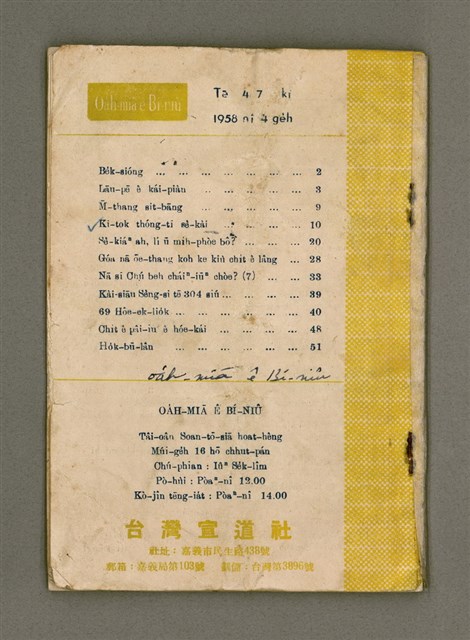 Oa̍h-miā ê Bí-niû
Tē 4 7 kî
1958 nî 4 ge̍h
Be̍k-sióng ... ... ... ... ... ... ... 2
Lāu-pē ê kái-piàn ... ... ... ... ... 3
M̄-thang sit-bāng ... ... ... ... ... 9
Ki-tok thóng-tī sè-kài ... ... ... ... 10
Sè-kiáⁿ ah, lí ū mih-phòe bô? ... ... ... 20
Góa nā ōe-thang koh ke kiù chit ê lâng ... 28
Nā sī Chú beh chái-iūⁿ chòe? (7) ... ... 33
Kài-siāu Sèng-si tē 304 siú ... ... ... 39
69 Hòe-ek-lio̍k ... ... ... ... ... 40
Chit ê pái-īn ê hóe-kái ... ... ... ... 48
Ho̍k-bū-lân ... ... ... ... ... ... 51
oa̍h-miā ê Bí-niû
OA̍H-MIĀ Ê BÍ-NIÛ
Tâi-oân Soan-tō-siā hoat-hêng
Múi-ge̍h 16 hō chhut-pán
Chú-phian : Iûⁿ Se̍k-lîm
Pò-hùi : Pòaⁿ-nî 12.00
Kò-jîn tēng-ia̍t : Pòaⁿ-nî 14.00
台灣宣道社
社址：嘉義市民生路438號
郵箱：嘉義局第103號 劃儲：台灣第3896號